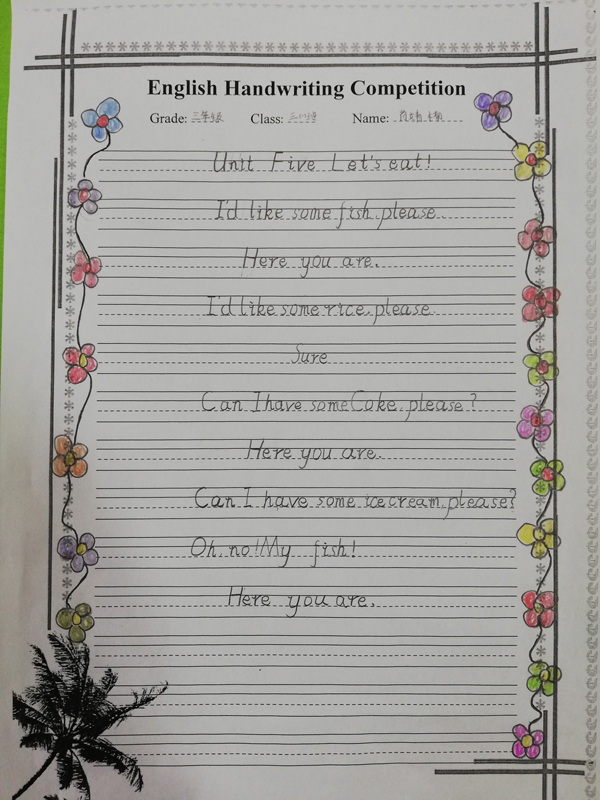 English Handwriting Competition
Grade: 三年级 Class: Name:
Unit Five Let's eat!
I'd like some fish, please.
Here you are.
I'd like some rice, please.
Sure
Can I have some Coke, please?
Here you are.
Can I have some ice cream, please?
Oh, no! My fish!
Here you are.